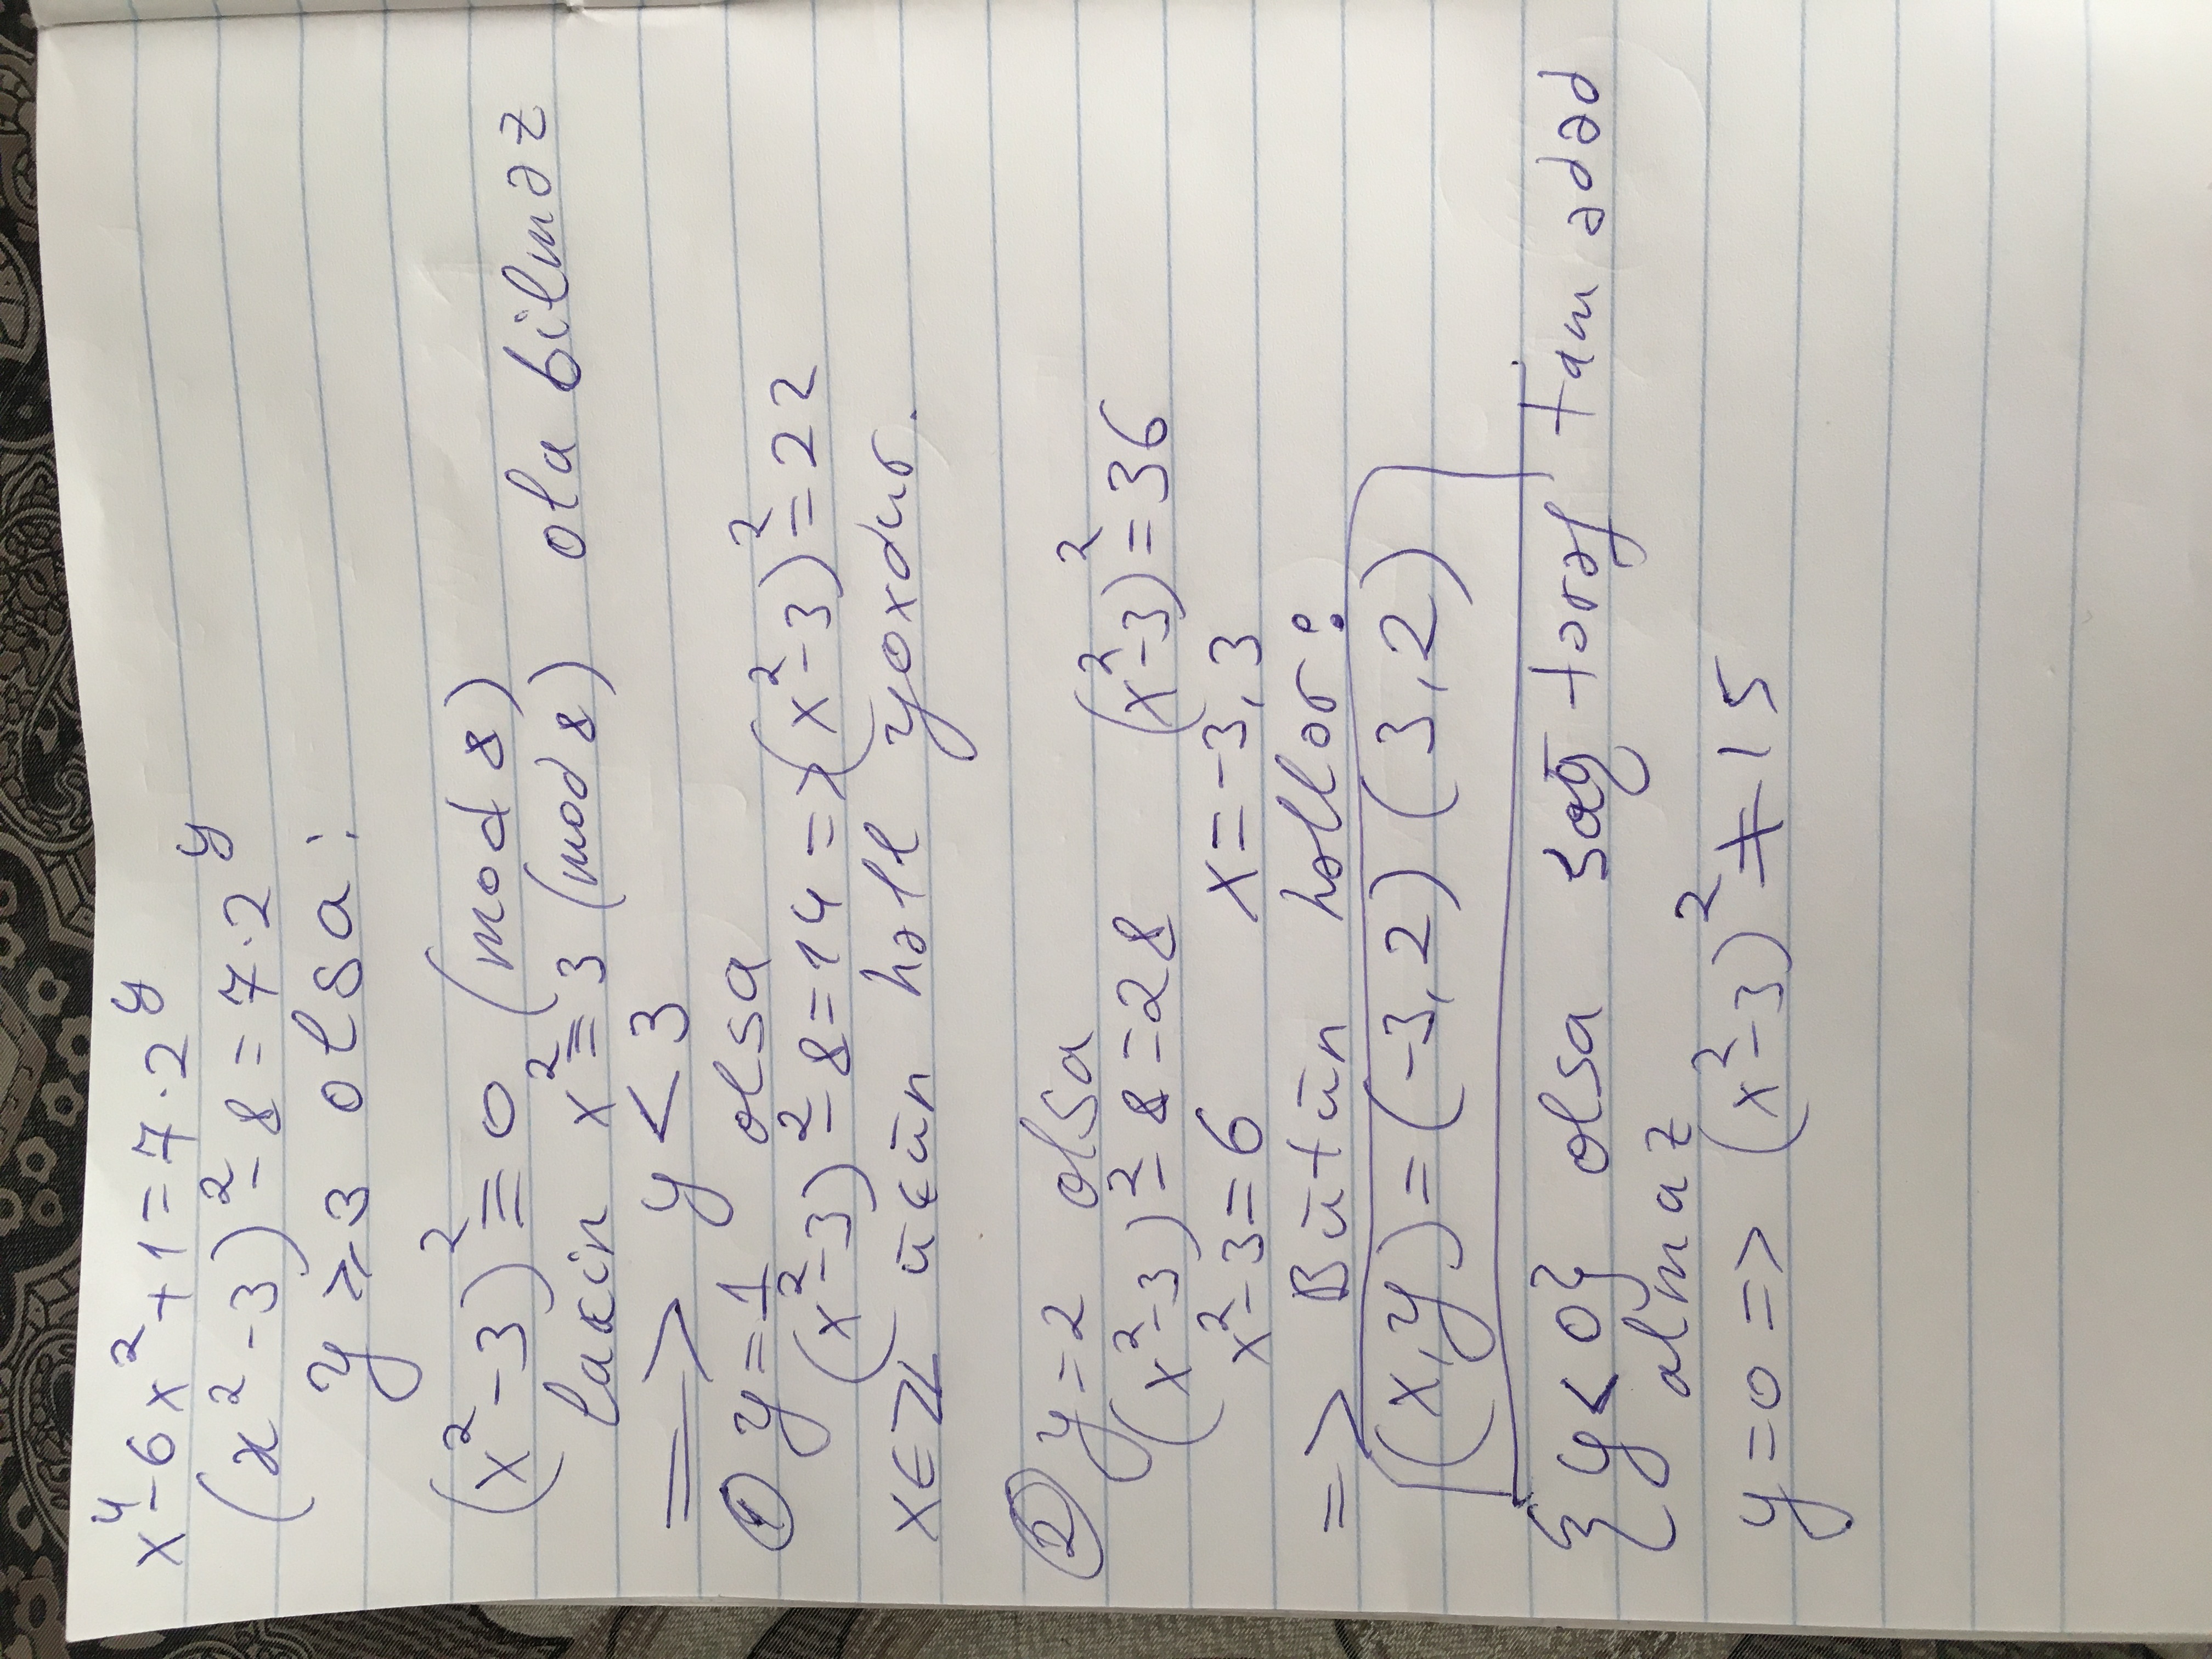 x⁴-6x²+1=7·2^y
(x²-3)²-8=7·2^y
y≥3 olsa:
(x²-3)²≡0 (mod 8)
lakin x²≡3 (mod 8) ola bilməz
=> y<3
① y=1 olsa
(x²-3)²-8=14=>(x²-3)²=22
x∈ℤ üçün həll yoxdur.
② y=2 olsa
(x²-3)²-8=28 (x²-3)²=36
x²-3=6 x=-3,3
=> Bütün həllər:
(x,y)=(-3,2) (3,2)
{y<0} olsa sağ tərəf tam ədəd
almaz
y=0 => (x²-3)²≠15